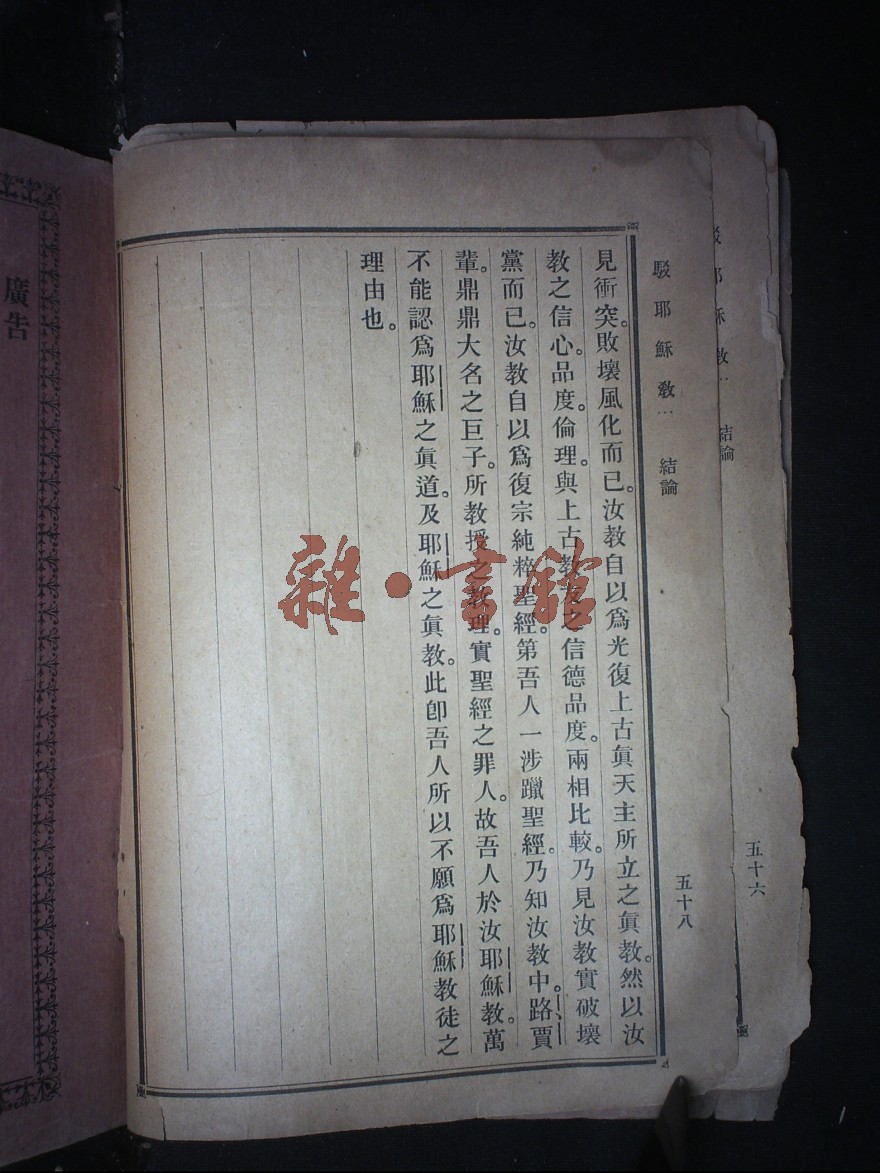 駁耶穌教… 結論 五十八
見衝突。敗壞風化而已。汝教自以爲光復上古眞天主所立之眞教。然以汝
教之信心。品度。倫理。與上古教友之信德品度。兩相比較。乃見汝教實破壞
黨而已。汝教自以爲復宗純粹聖經。第吾人一涉躐聖經。乃知汝教中。路、賈
輩。鼎鼎大名之巨子。所教授之教理。實聖經之罪人。故吾人於汝耶穌教。萬
不能認爲耶穌之眞道。及耶穌之眞教。此卽吾人所以不願爲耶穌教徒之
理由也。
駁耶穌教… 結論 五十六
廣告
雜·書館